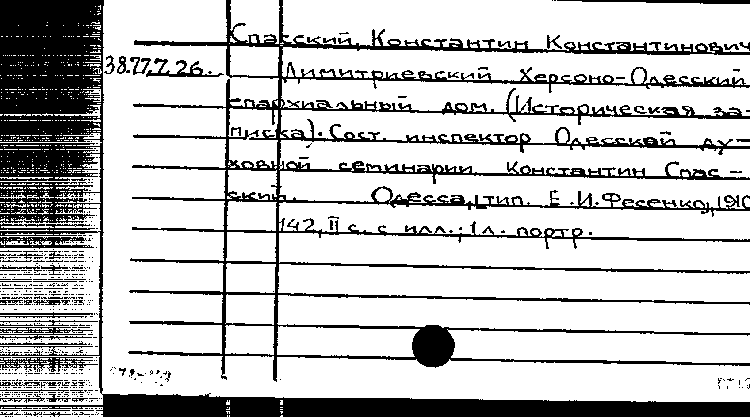 Спасский, Константин Константинович
38.77.7.26. Димитриевский Херсоно-Одесский
епархиальный дом. (Историческая за-
писка). Сост. инспектор Одесской ду-
ховной семинарии Константин Спас-
ский. Одесса, тип. Е.И.Фесенко, 1910
142, II с. с илл.; 1 л. портр.